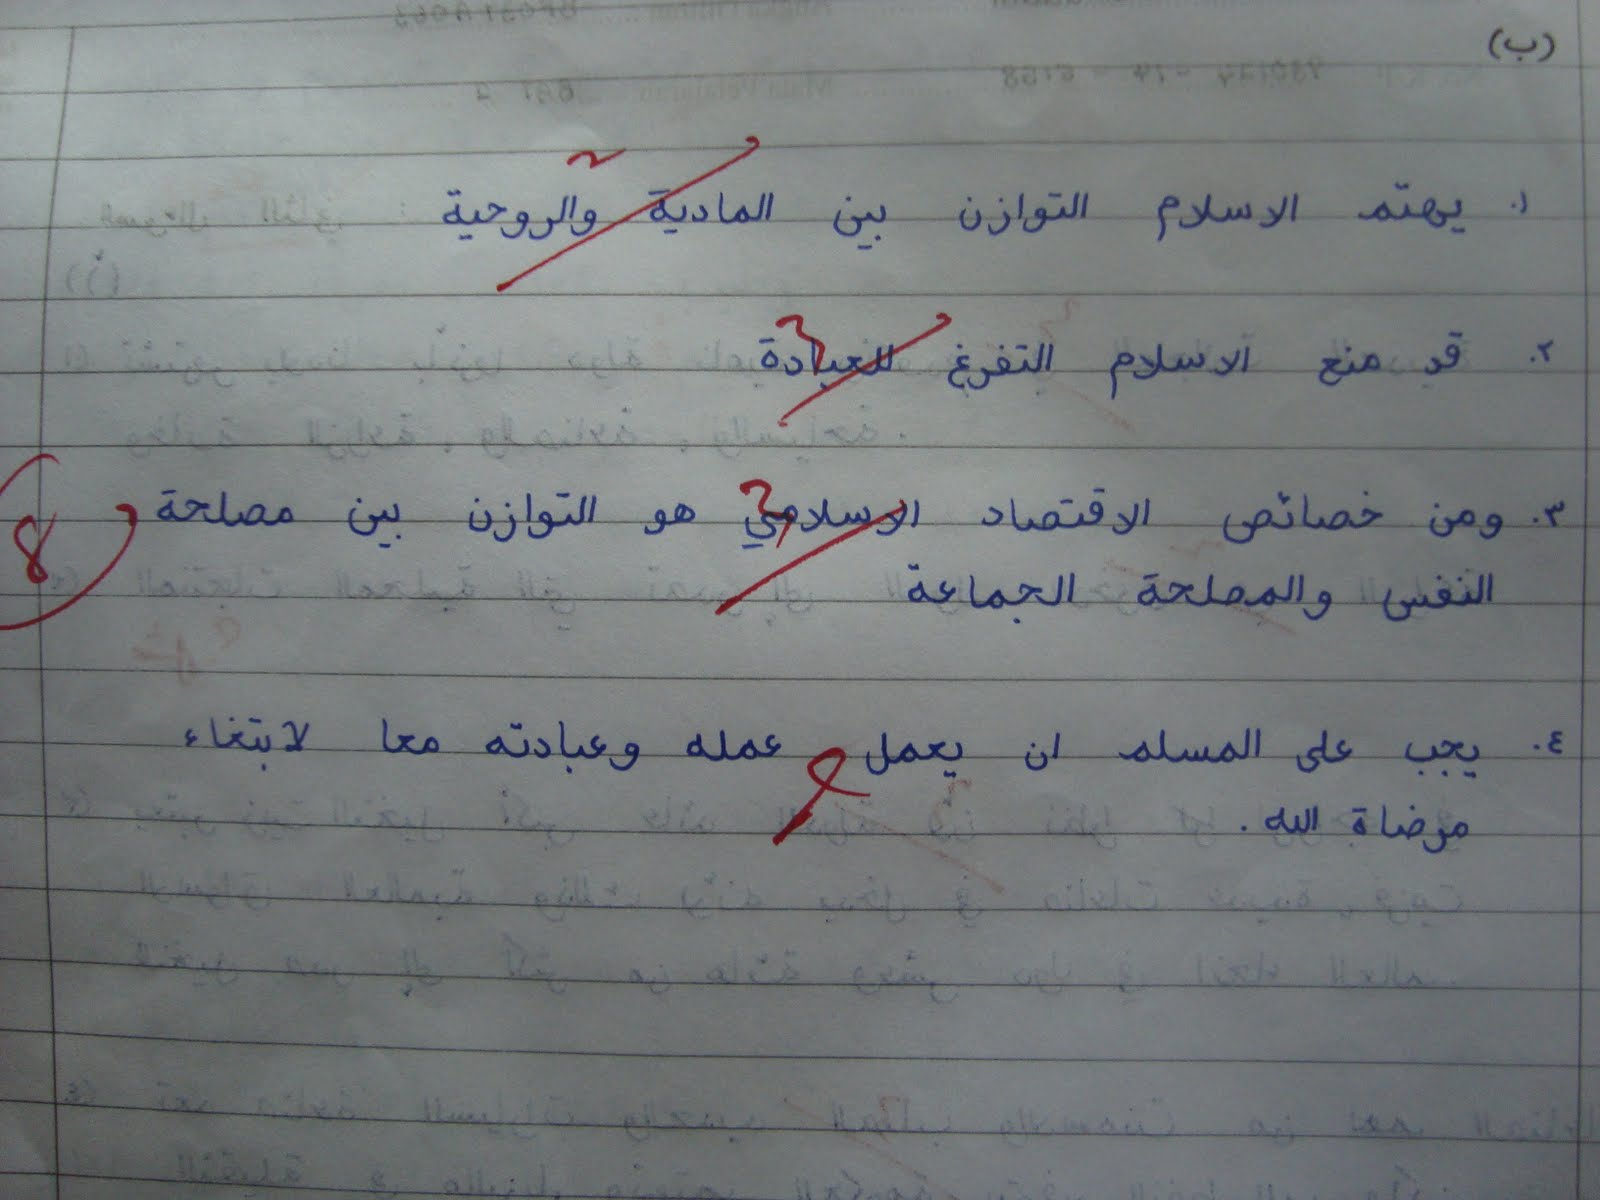 (ب)
١. يهتم الاسلام التوازن بين المادية والروحية
٢. قد منع الاسلام التفرغ للعبادة
٣. ومن خصائص الاقتصاد الاسلامي هو التوازن بين مصلحة
النفس والمصلحة الجماعة
8
٤. يجب على المسلم ان يعمل عمله وعبادته معا لابتغاء
مرضاة الله.